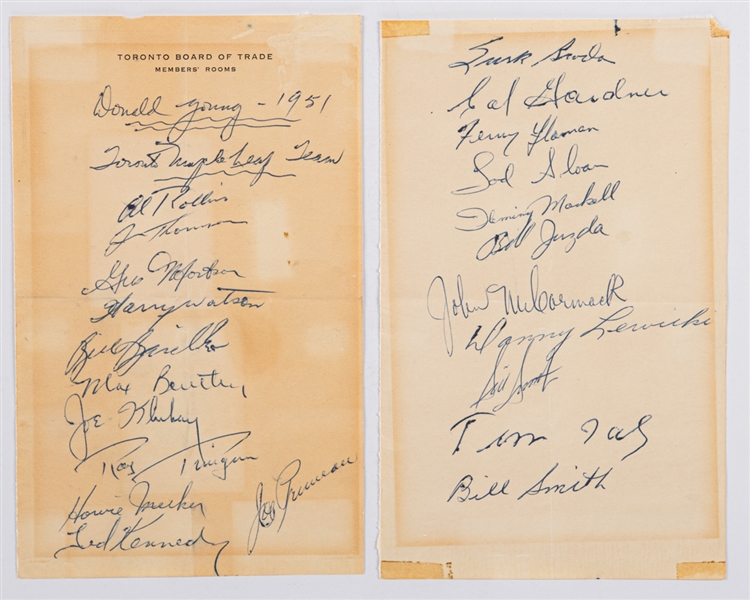 TORONTO BOARD OF TRADE
MEMBERS' ROOMS
Donald Young - 1951
Toronto Maple Leaf Team
Al Rollins
J Thomson
Gus Mortson
Harry Watson
Bill Barilko
Max Bentley
Joe Klukay
Ray Timgren
Howie Meeker
Joe Primeau
Ted Kennedy
Turk Broda
Cal Gardner
Ferny Flaman
Tod Sloan
Fleming Mackell
Bill Juzda
John McCormack
Danny Lewicki
Sid Smith
Tim
Bill Smith